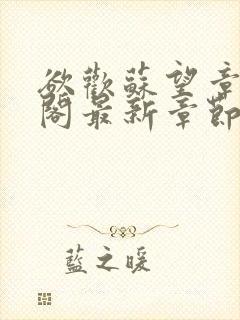 欲歡蘇望章
閣最新章節
藍之暖